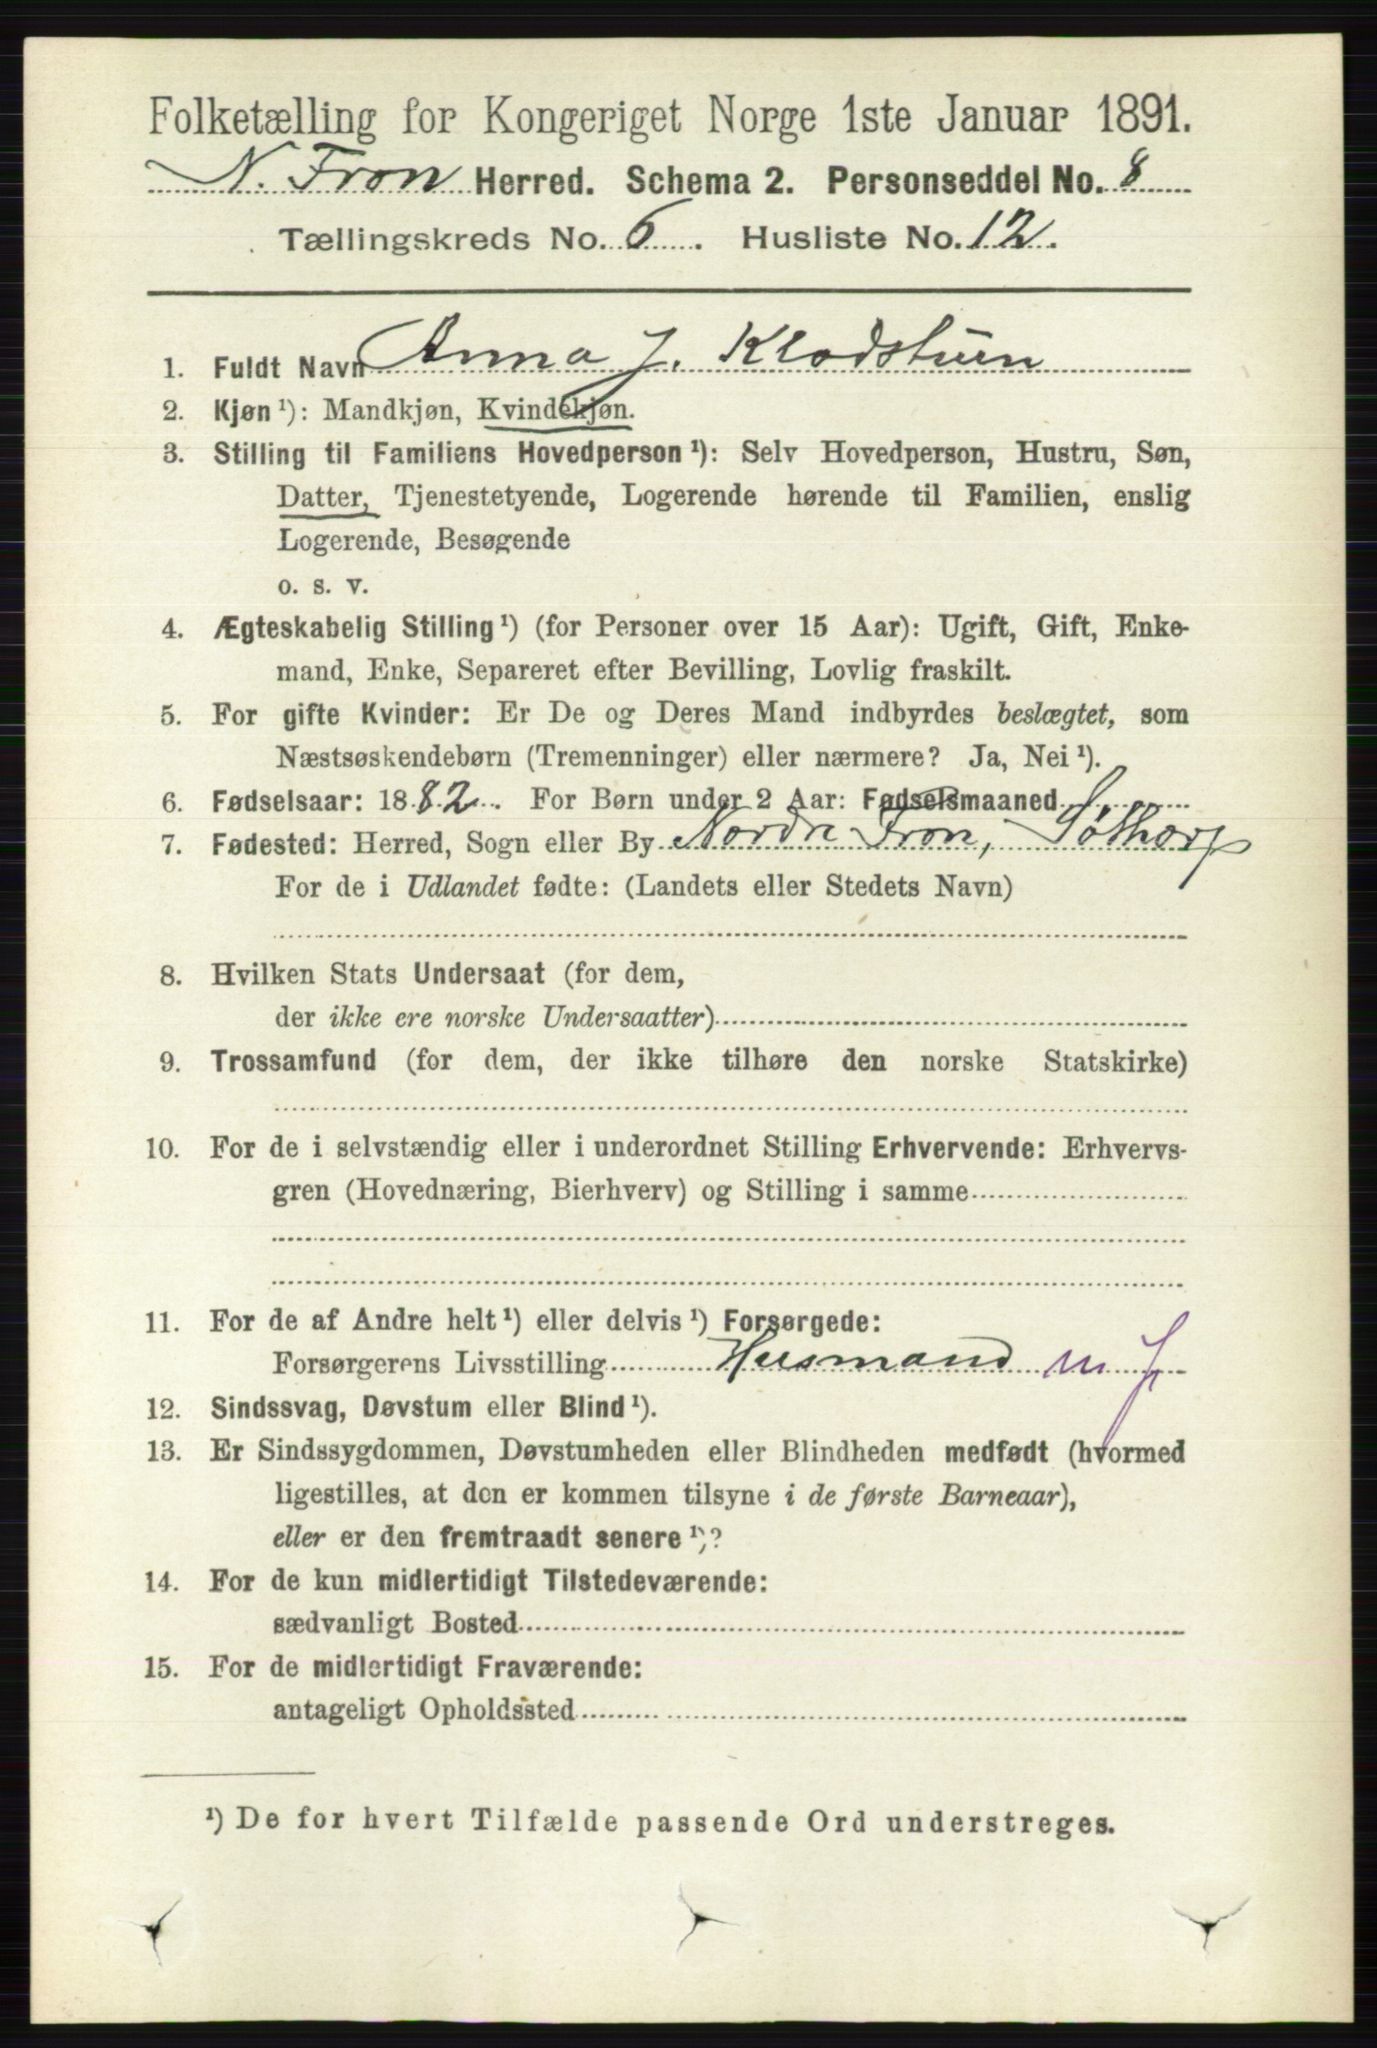 Folketælling for Kongeriget Norge 1ste Januar 1891.
N. Fron Herred. Schema 2. Personseddel No. 8
Tællingskreds No. 6. Husliste No. 12.
1. Fuldt Navn Anna J. Klodstuen
2. Kjøn ¹): Mandkjøn, Kvindekjøn.
3. Stilling til Familiens Hovedperson ¹): Selv Hovedperson, Hustru, Søn,
Datter, Tjenestetyende, Logerende hørende til Familien, enslig
Logerende, Besøgende
o. s. v.
4. Ægteskabelig Stilling ¹) (for Personer over 15 Aar): Ugift, Gift, Enke-
mand, Enke, Separeret efter Bevilling, Lovlig fraskilt.
5. For gifte Kvinder: Er De og Deres Mand indbyrdes beslægtet, som
Næstsøskendebørn (Tremenninger) eller nærmere? Ja, Nei ¹).
6. Fødselsaar: 1882. For Børn under 2 Aar: Fødselsmaaned
7. Fødested: Herred, Sogn eller By Nordre Fron, Søthorp
For de i Udlandet fødte: (Landets eller Stedets Navn)
8. Hvilken Stats Undersaat (for dem,
der ikke ere norske Undersaatter)
9. Trossamfund (for dem, der ikke tilhøre den norske Statskirke)
10. For de i selvstændig eller i underordnet Stilling Erhvervende: Erhvervs-
gren (Hovednæring, Bierhverv) og Stilling i samme
11. For de af Andre helt ¹) eller delvis ¹) Forsørgede:
Forsørgerens Livsstilling Husmand m J
12. Sindssvag, Døvstum eller Blind ¹).
13. Er Sindssygdommen, Døvstumheden eller Blindheden medfødt (hvormed
ligestilles, at den er kommen tilsyne i de første Barneaar),
eller er den fremtraadt senere ¹)?
14. For de kun midlertidigt Tilstedeværende:
sædvanligt Bosted
15. For de midlertidigt Fraværende:
antageligt Opholdssted
¹) De for hvert Tilfælde passende Ord understreges.